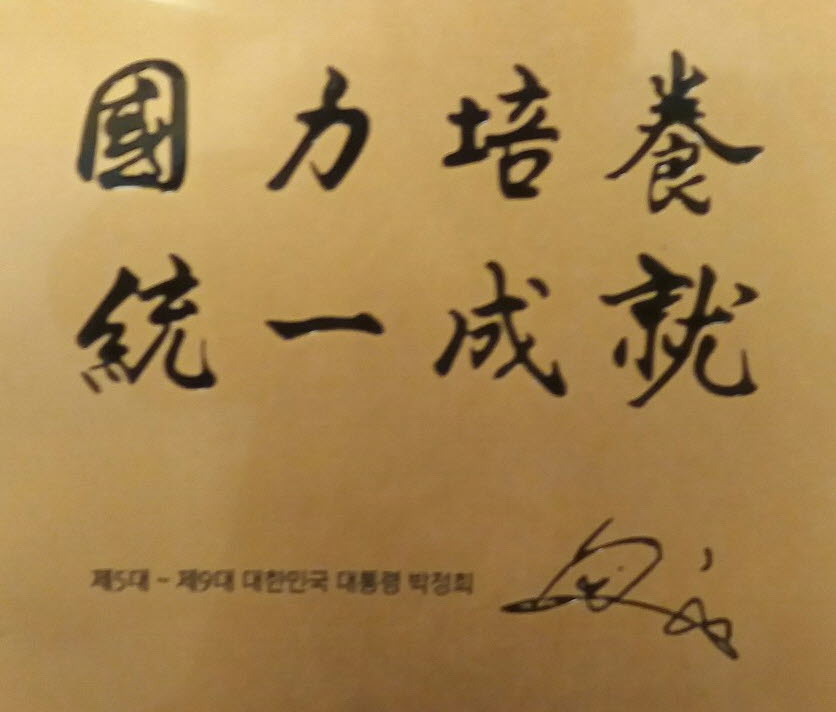 國力培養
統一成就
제5대 ~ 제9대 대한민국 대통령 박정희